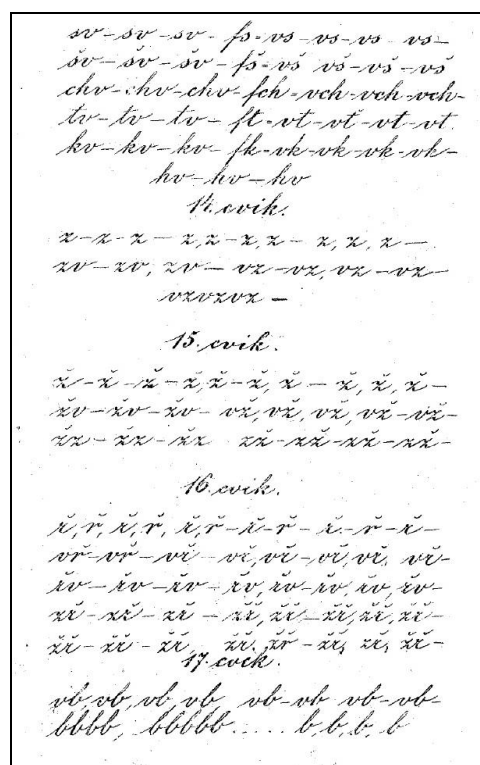 sv – sv – sv – fs – vs – vs – vs vs –
šv – šv – šv – fš – vš vš – vš – vš
chv – chv – chv – fch – vch – vch – vch –
tv – tv – tv – ft – vt – vt – vt – vt.
kv – kv – kv – fk – vk – vk – vk – vk –
hv – hv – hv
14. cvik.
z – z – z – z, z – z, z – z, z, z –
zv – zv, zv – vz – vz, vz – vz –
vzvzvz –
15. cvik.
ž – ž – ž – ž, ž – ž, ž – ž, ž, ž –
žv – žv – žv – vž, vž, vž, vž – vž –
žz – žz – žz zž – zž – zž – zž –
16. cvik.
ř, ř, ř, ř, ř, ř – ř – ř – ř – ř – ř –
vř – vř – vř – vř, vř – vř, vř, vř –
řv – řv – řv – řv, řv – řv, řv, řv –
zř – zř – zř – zř, zř – zř, zř, zř –
žř – žř – žř, žř, žř – žř, žř, žř –
17. cvik.
vb, vb, vb, vb, vb – vb vb – vb –
bbbb, bbbbb..... b, b, b, b